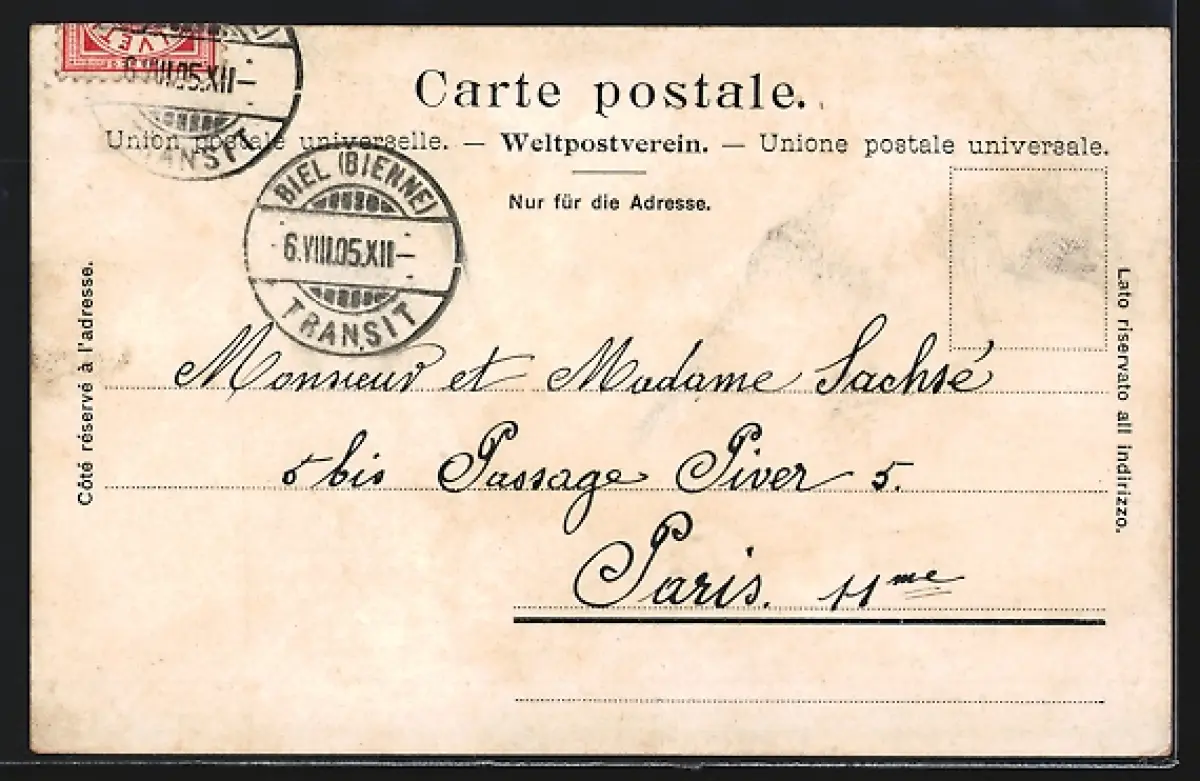 VET
6.VIII.05.XII–
TRANSIT
Carte postale.
Union postale universelle. — Weltpostverein. — Unione postale universale.
Nur für die Adresse.
BIEL (BIENNE)
6.VIII.05.XII–
TRANSIT
Côté réservé à l'adresse.
Lato riservato all indirizzo.
Monsieur et Madame Sachsé
5 bis Passage Piver 5.
Paris. 11me